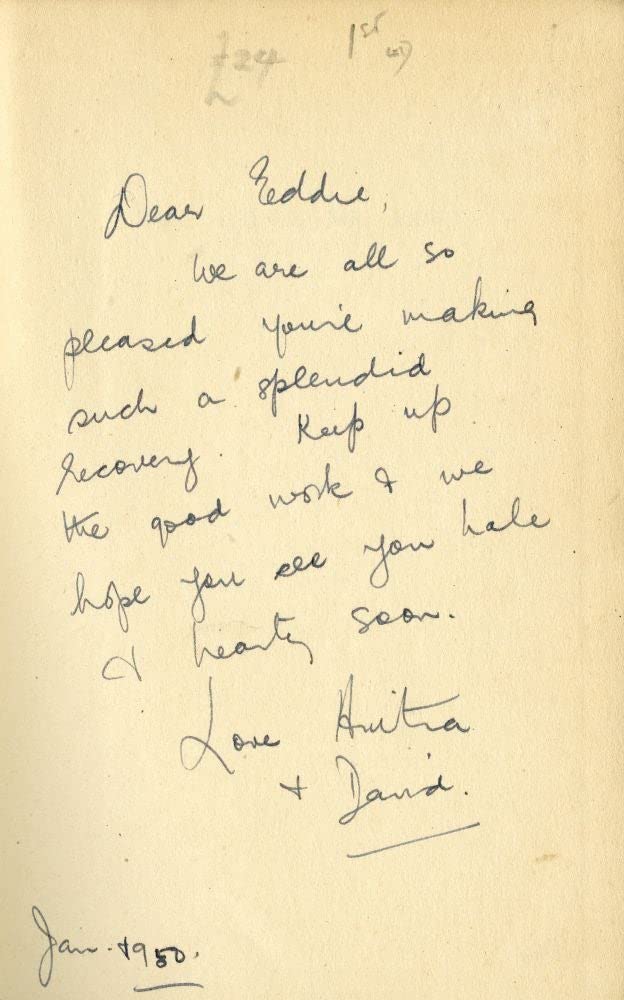 £24 1st ed
Dear Eddie,
We are all so
pleased you're making
such a splendid
recovery. Keep up
the good work & we
hope you see you hale
& hearty soon.
Love
+ David.
Jan. 1950.